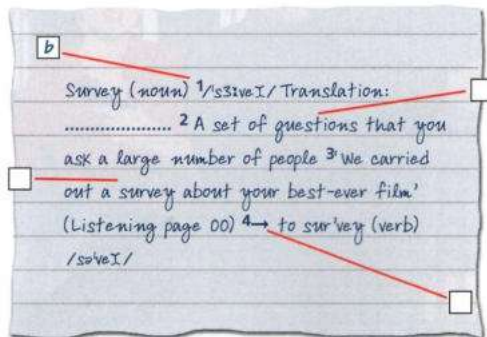 b
Survey (noun) ¹/ˈsɜːveɪ/ Translation:
..................... ² A set of questions that you
ask a large number of people ³'We carried
out a survey about your best-ever film'
(Listening page 00) ⁴→ to sur'vey (verb)
/səˈveɪ/